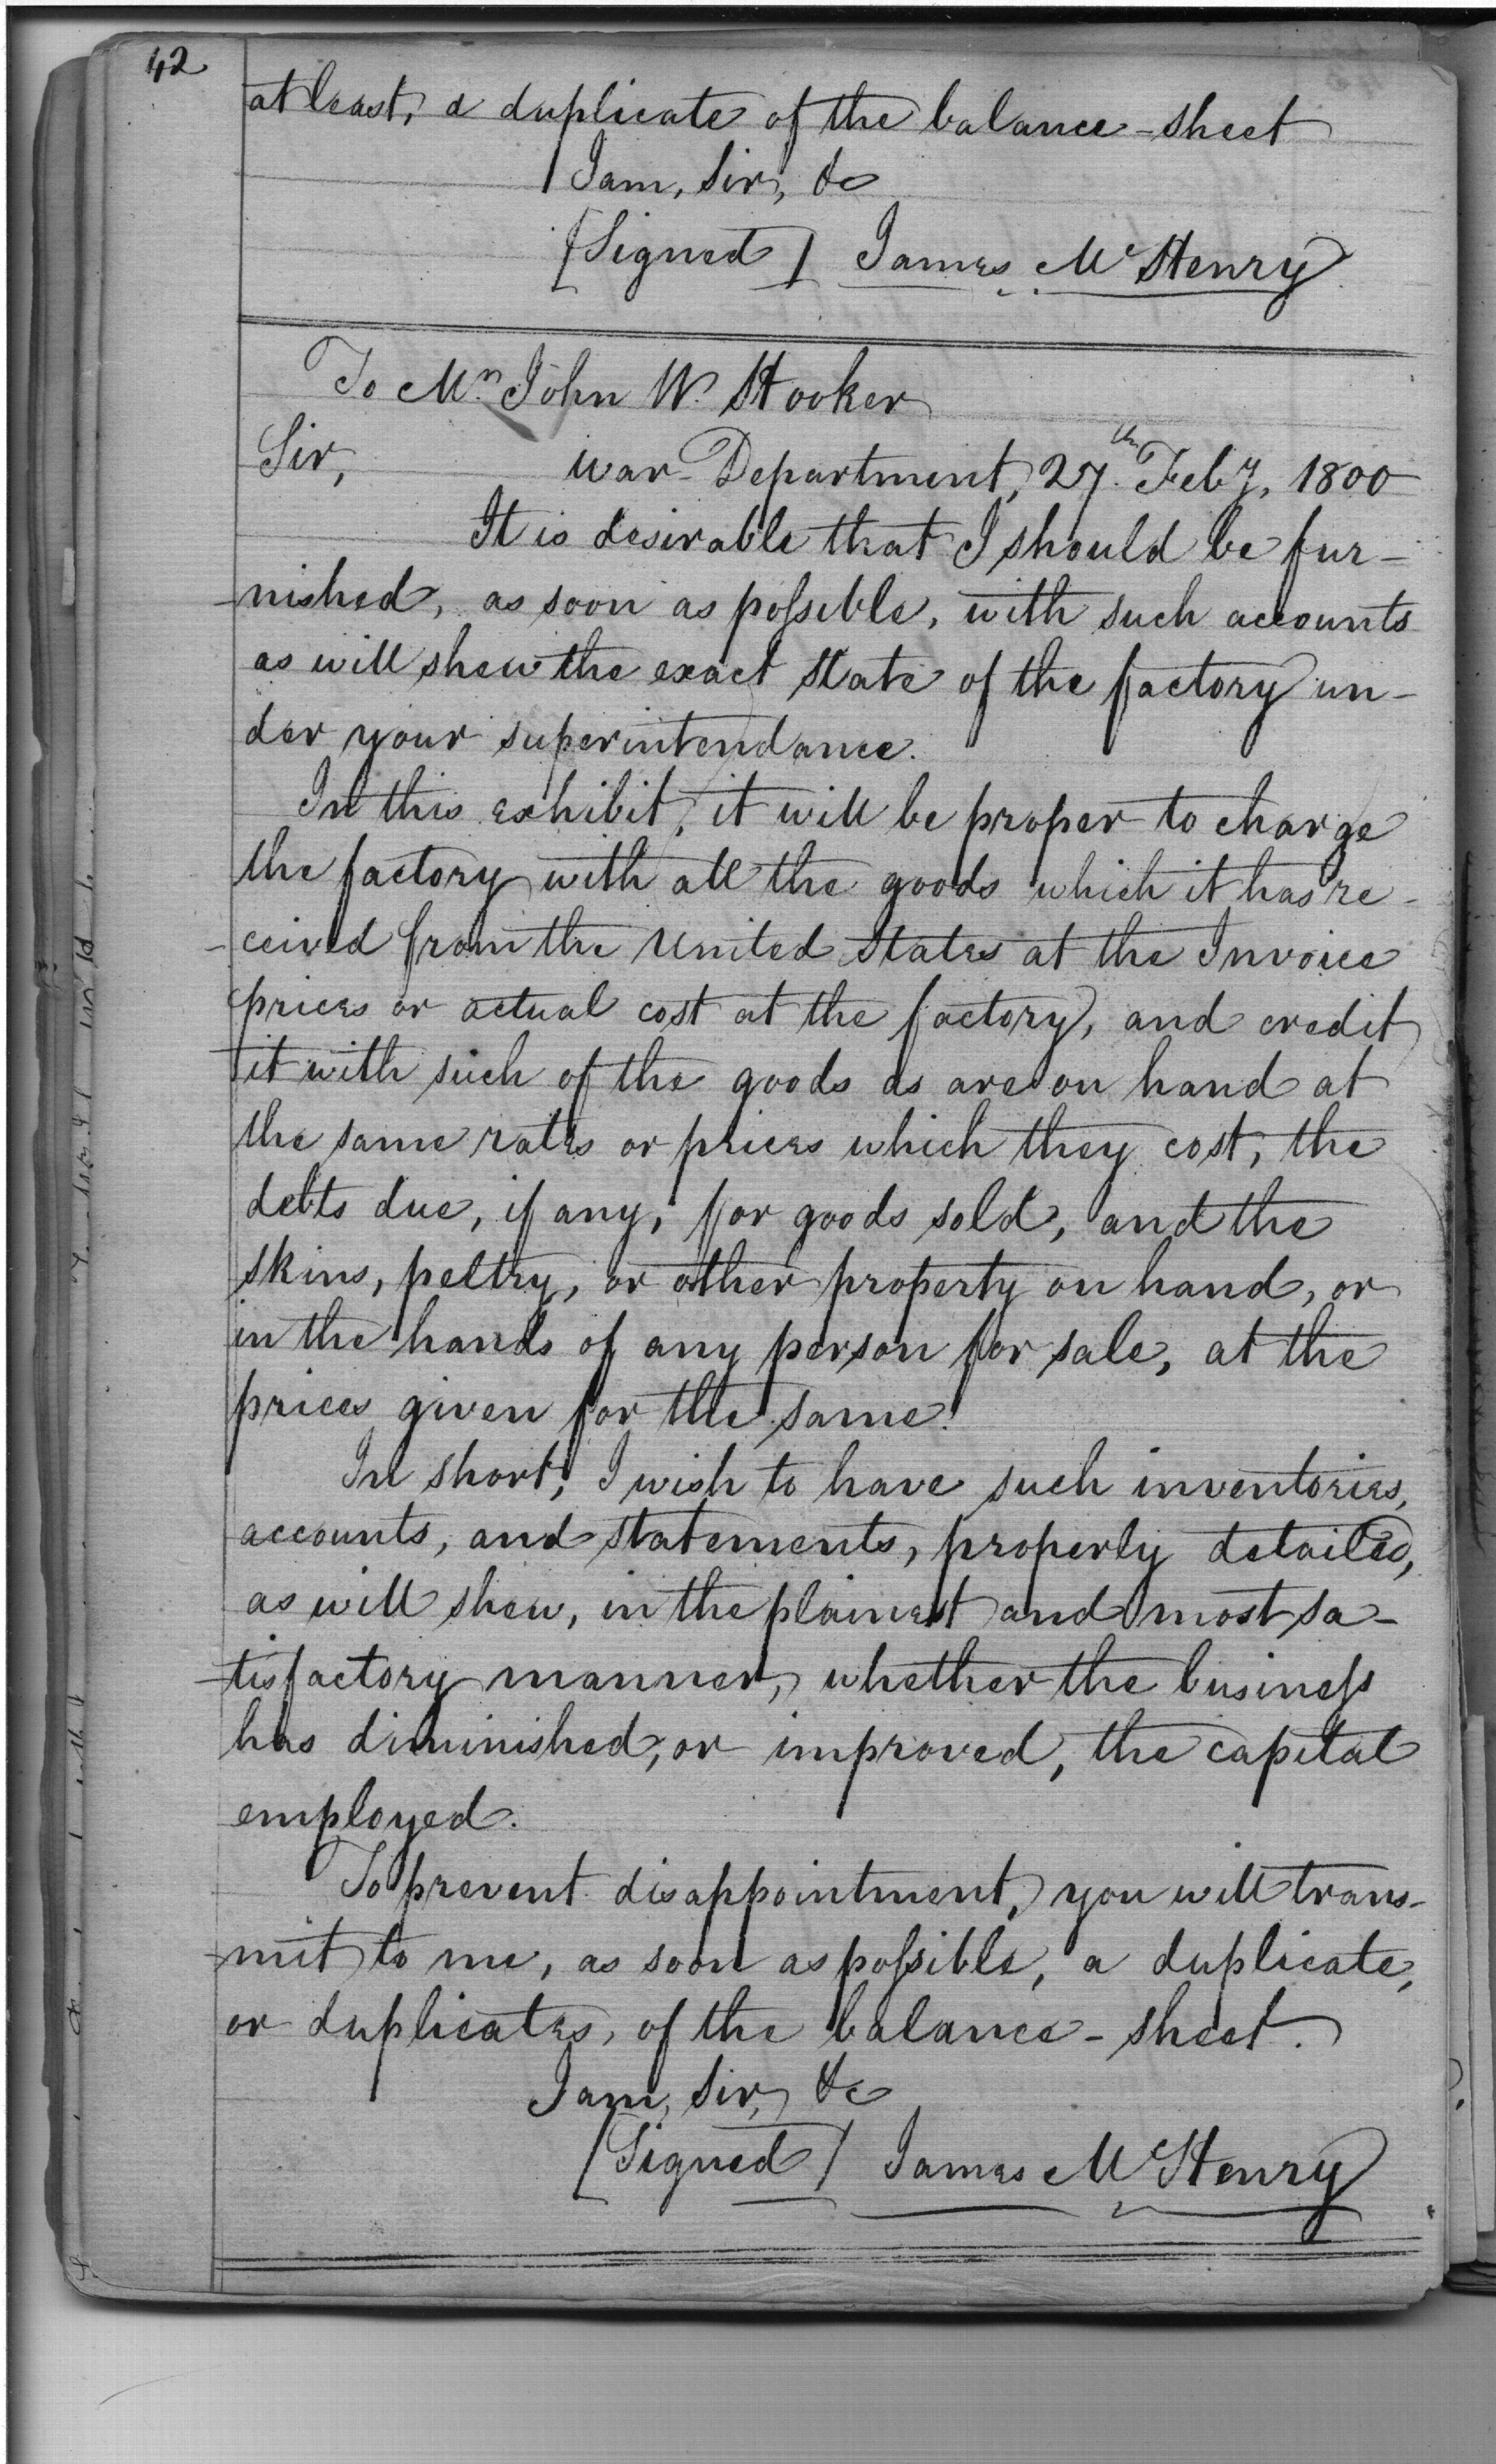 42
at least, a duplicate of the balance-sheet
I am, Sir, &c
[Signed] James McHenry
To Mr. John W. Hooker
Sir, War Department, 27th Feby, 1800
It is desirable that I should be fur-
-nished, as soon as possible, with such accounts
as will shew the exact state of the factory un-
der your superintendance.
In this exhibit, it will be proper to charge
the factory with all the goods which it has re-
-ceived from the United States at the Invoice
prices or actual cost at the factory, and credit
it with such of the goods as are on hand at
the same rates or prices which they cost, the
debts due, if any, for goods sold, and the
skins, peltry, or other property on hand, or
in the hands of any person for sale, at the
prices given for the same.
In short, I wish to have such inventories,
accounts, and statements, properly detailed,
as will shew, in the plainest and most sa-
-tisfactory manner, whether the business
has diminished, or improved, the capital
employed.
To prevent disappointment, you will trans-
-mit to me, as soon as possible, a duplicate,
or duplicates, of the balance-sheet.
I am, Sir, &c
[Signed] James McHenry